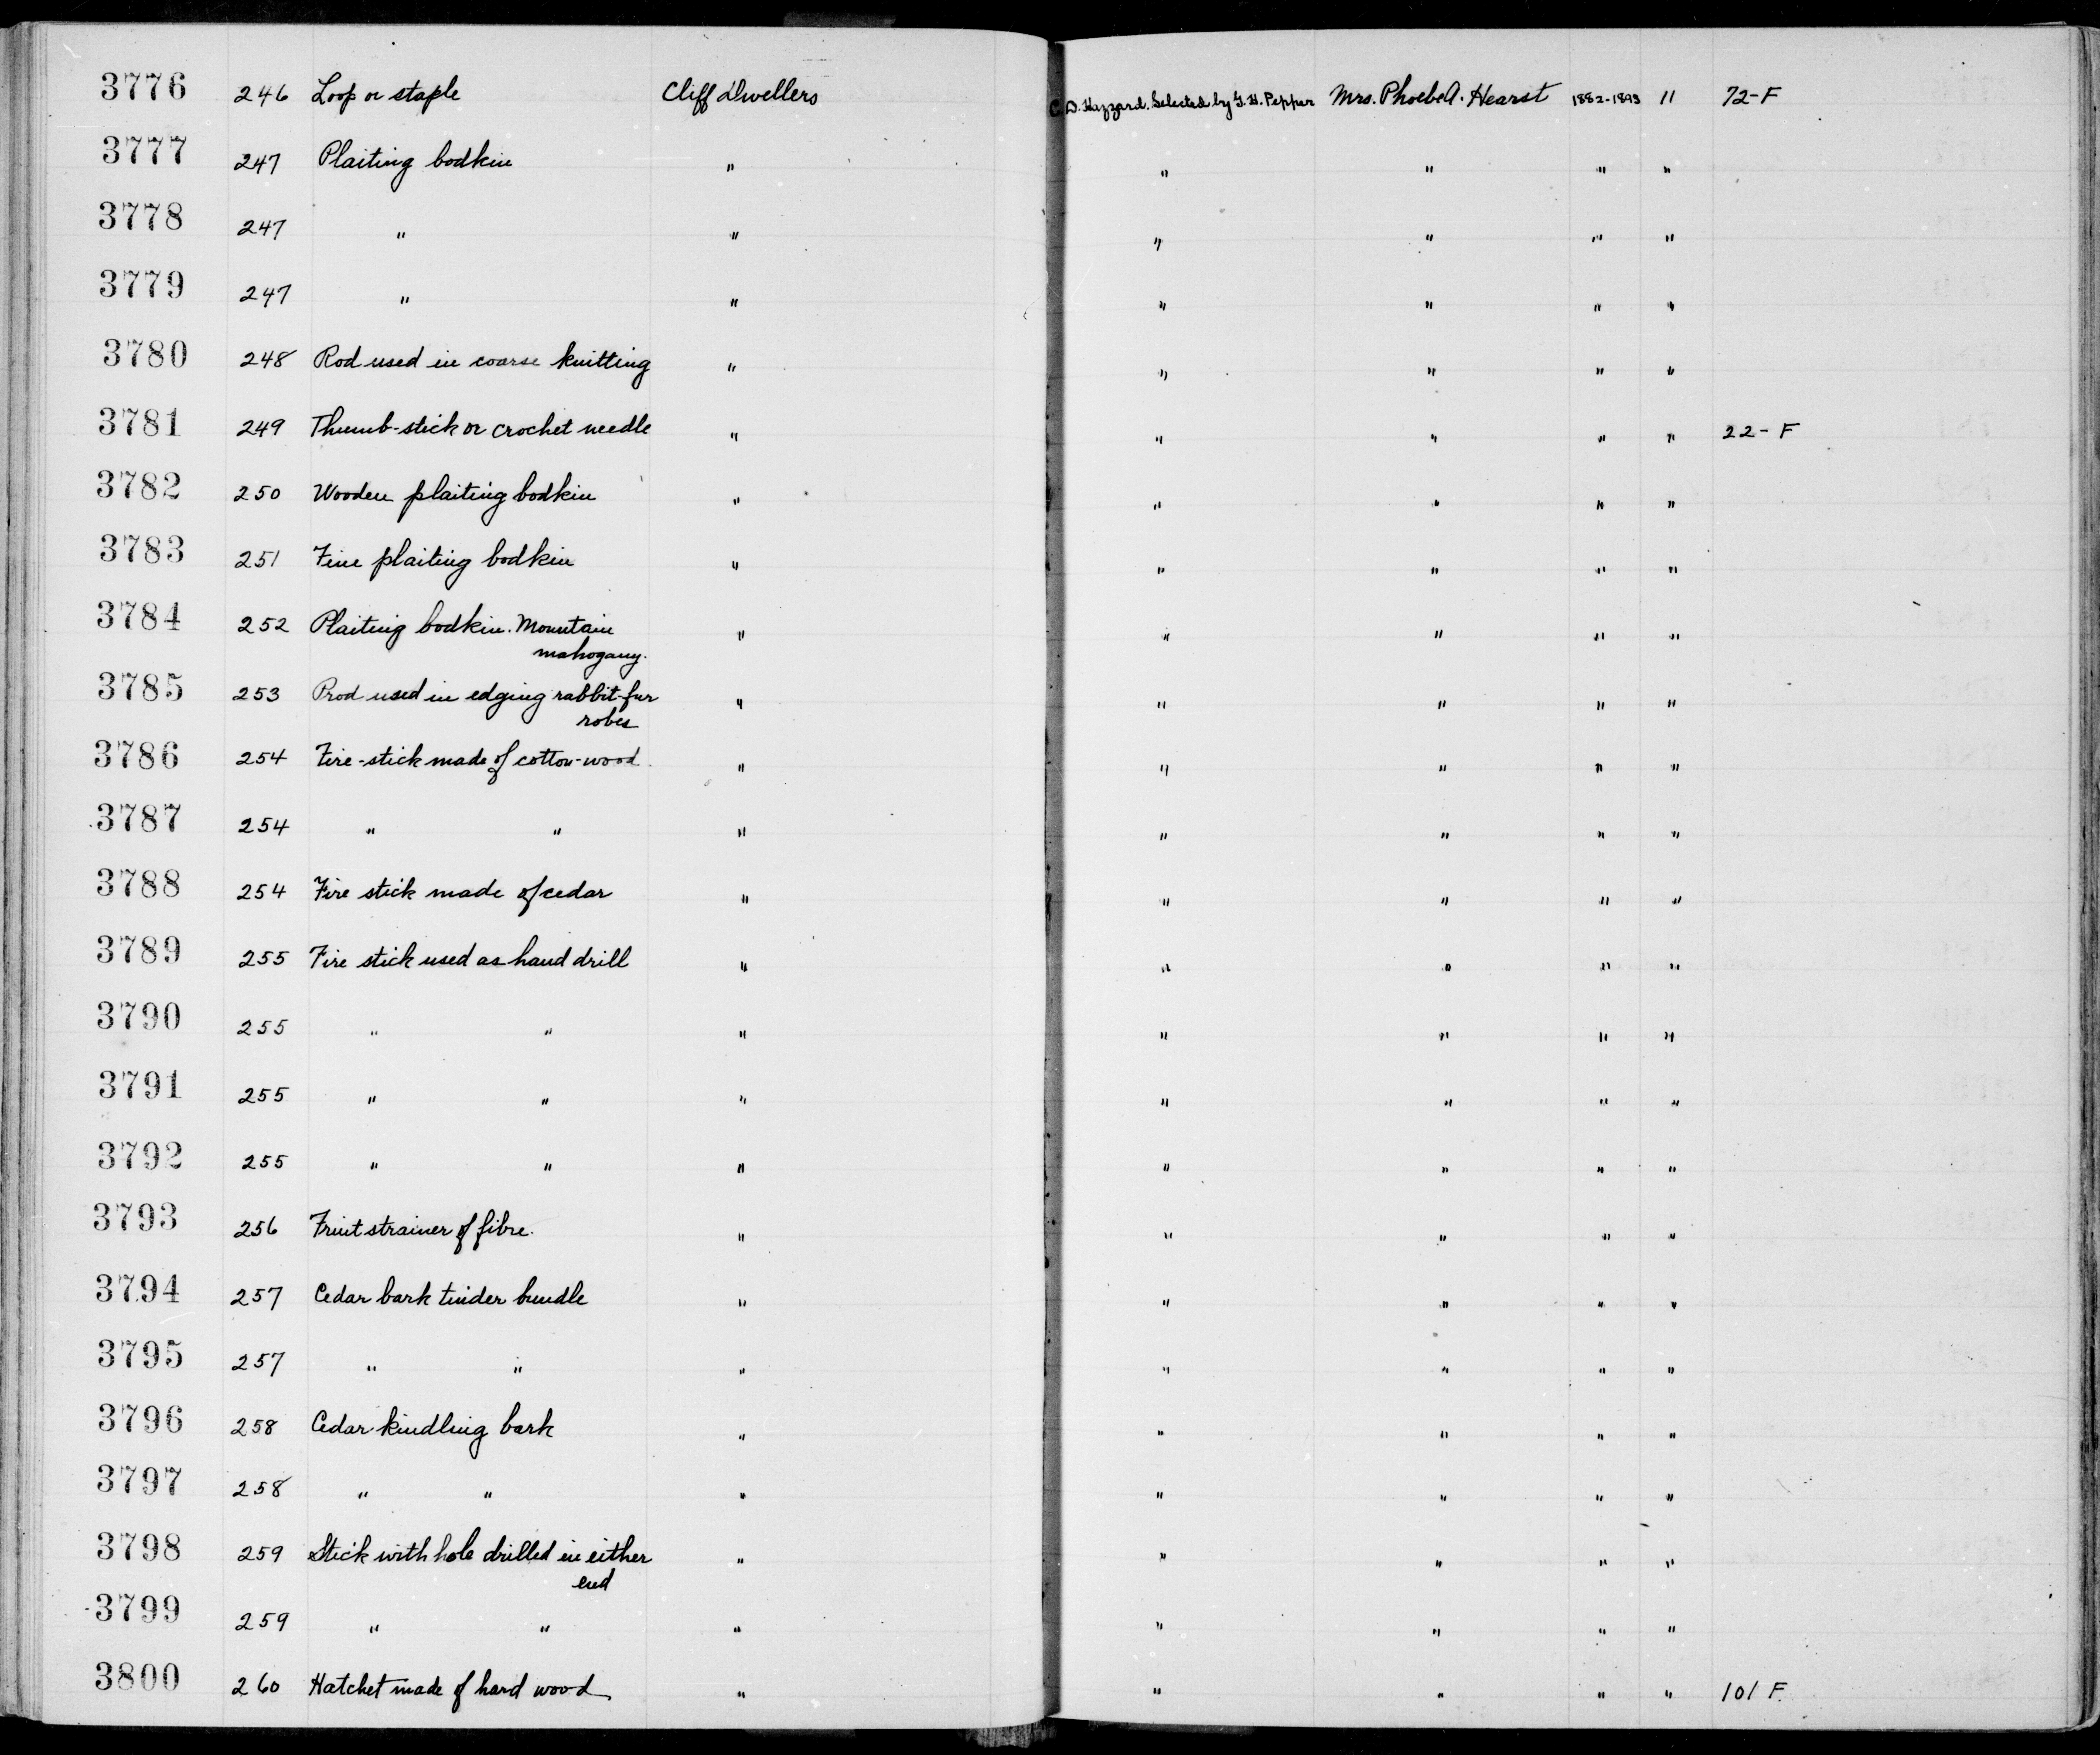 3776 246 Loop or staple Cliff Dwellers C. D. Hazzard. Selected by G. H. Pepper Mrs. Phoebe A. Hearst 1882-1893 11 72-F
3777 247 Plaiting bodkin " " " " "
3778 247 " " " " " "
3779 247 " " " " " "
3780 248 Rod used in coarse knitting " " " " "
3781 249 Thumb-stick or crochet needle " " " " " 22-F
3782 250 Wooden plaiting bodkin " " " " "
3783 251 Fine plaiting bodkin " " " " "
3784 252 Plaiting bodkin. Mountain " " " " "
mahogany.
3785 253 Prod used in edging rabbit-fur " " " " "
robes
3786 254 Fire-stick made of cotton-wood " " " " "
3787 254 " " " " " " "
3788 254 Fire stick made of cedar " " " " "
3789 255 Fire stick used as hand drill " " " " "
3790 255 " " " " " " "
3791 255 " " " " " " "
3792 255 " " " " " " "
3793 256 Fruit strainer of fibre. " " " " "
3794 257 Cedar bark tinder bundle " " " " "
3795 257 " " " " " " "
3796 258 Cedar kindling bark " " " " "
3797 258 " " " " " " "
3798 259 Stick with hole drilled in either " " " " "
end
3799 259 " " " " " " "
3800 260 Hatchet made of hard wood " " " " " 101 F.